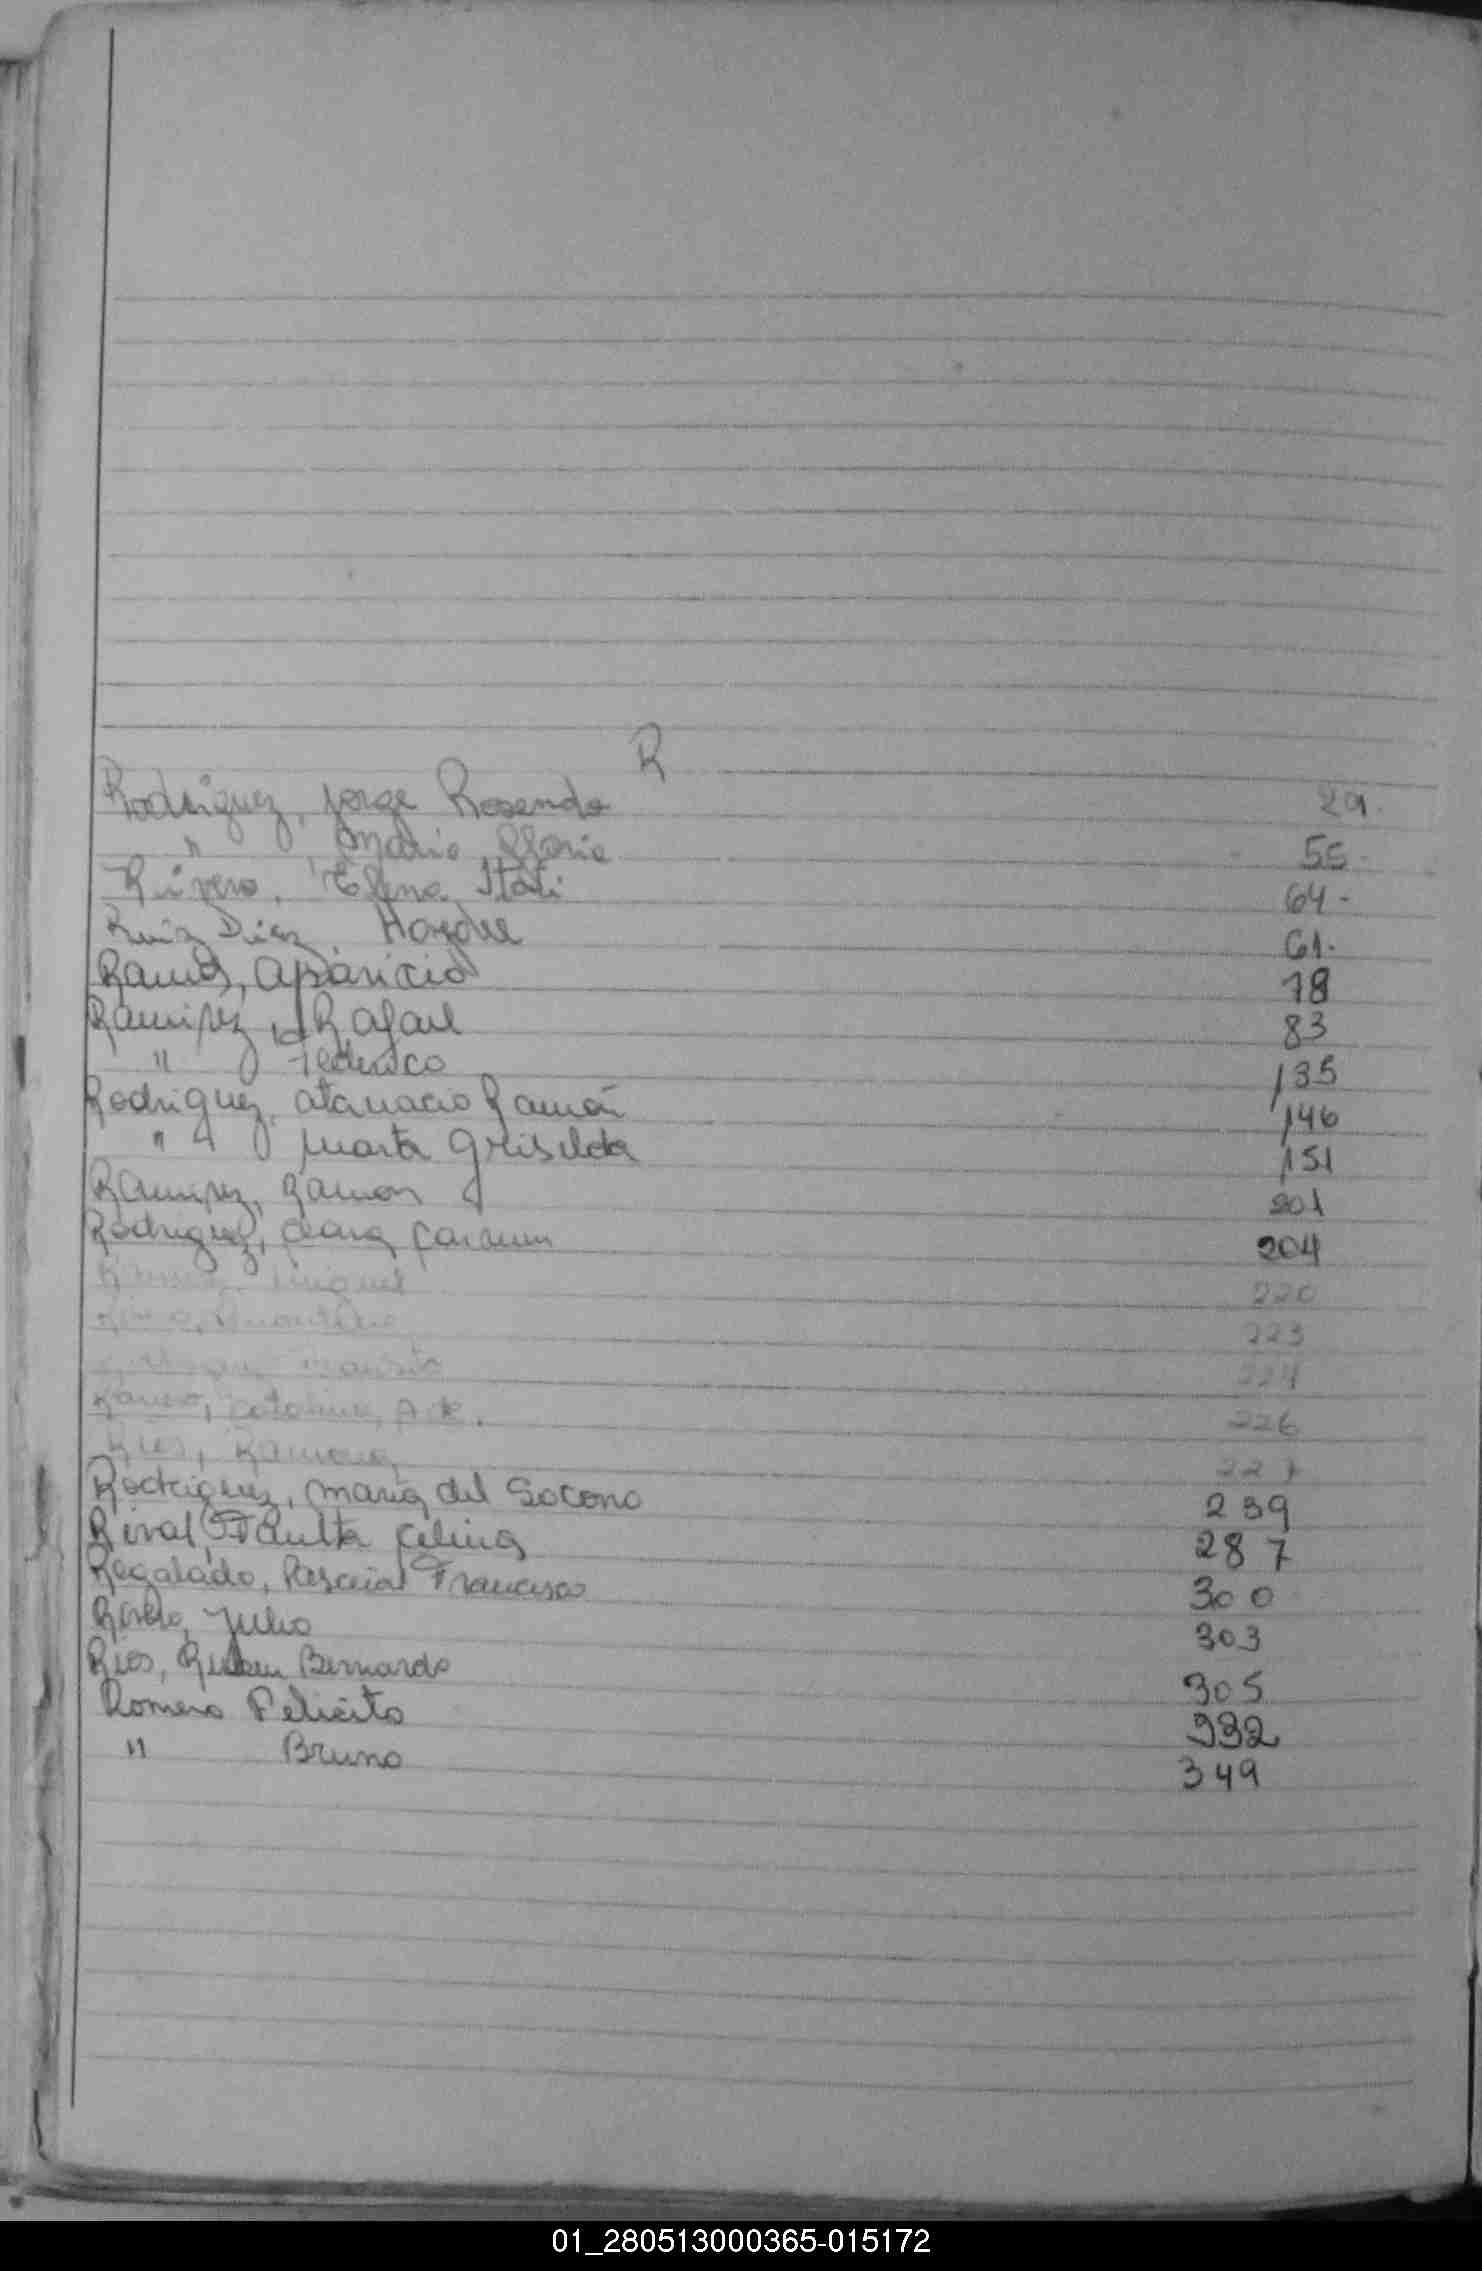 R
Rodriguez, Jorge Rosendo 29.
" Maria Gloria 55.
Rivero, Elena Itati 64.
Ruiz Diaz, Haydee 61.
Ramos, Aparicio 78
Ramirez, Rafael 83
" Federico 135
Rodriguez, Atanacio Ramón 146
" Marta Griselda 151
Ramirez, Ramon 201
Rodriguez, Clara Carmen 204
Miguel 220
223
224
Catalina, A de. 226
Rios, Ramona 227
Rodriguez, Maria del Socorro 239
Celina 287
Regalado, Pascual Francisco 300
Julio 303
Rios, Ruben Bernardo 305
Romero Felicita 332
" Bruno 349
01_280513000365-015172